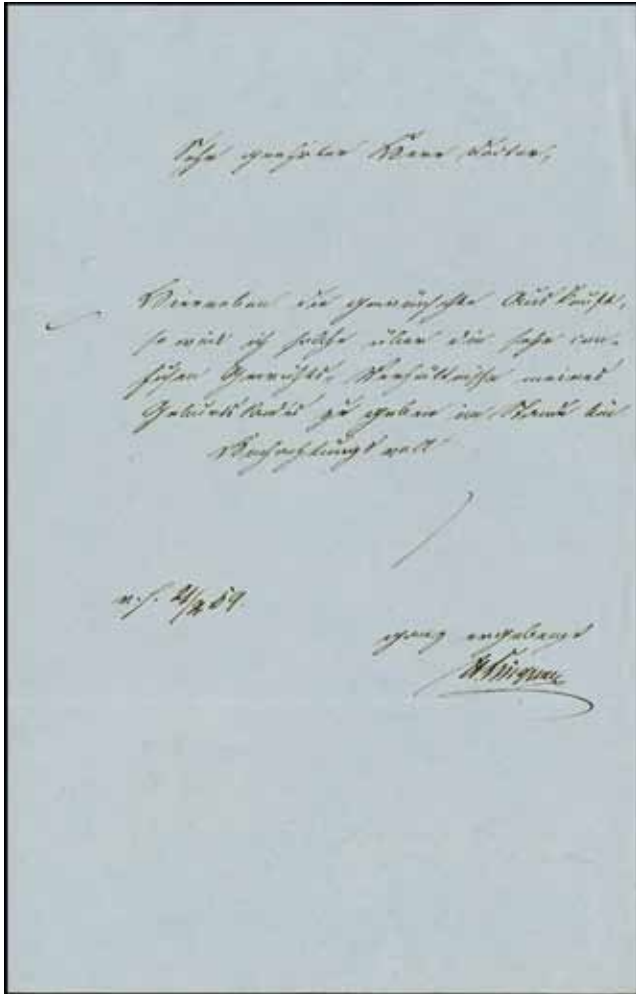 Sehr geehrter Herr Doctor,
Hierneben die gewünschte Auskunft,
so weit ich solche über die sehr con-
fusen Gerichts-Verhältnisse meines
Geburts zu geben im Stande bin
Hochachtungsvoll
ganz ergebenst